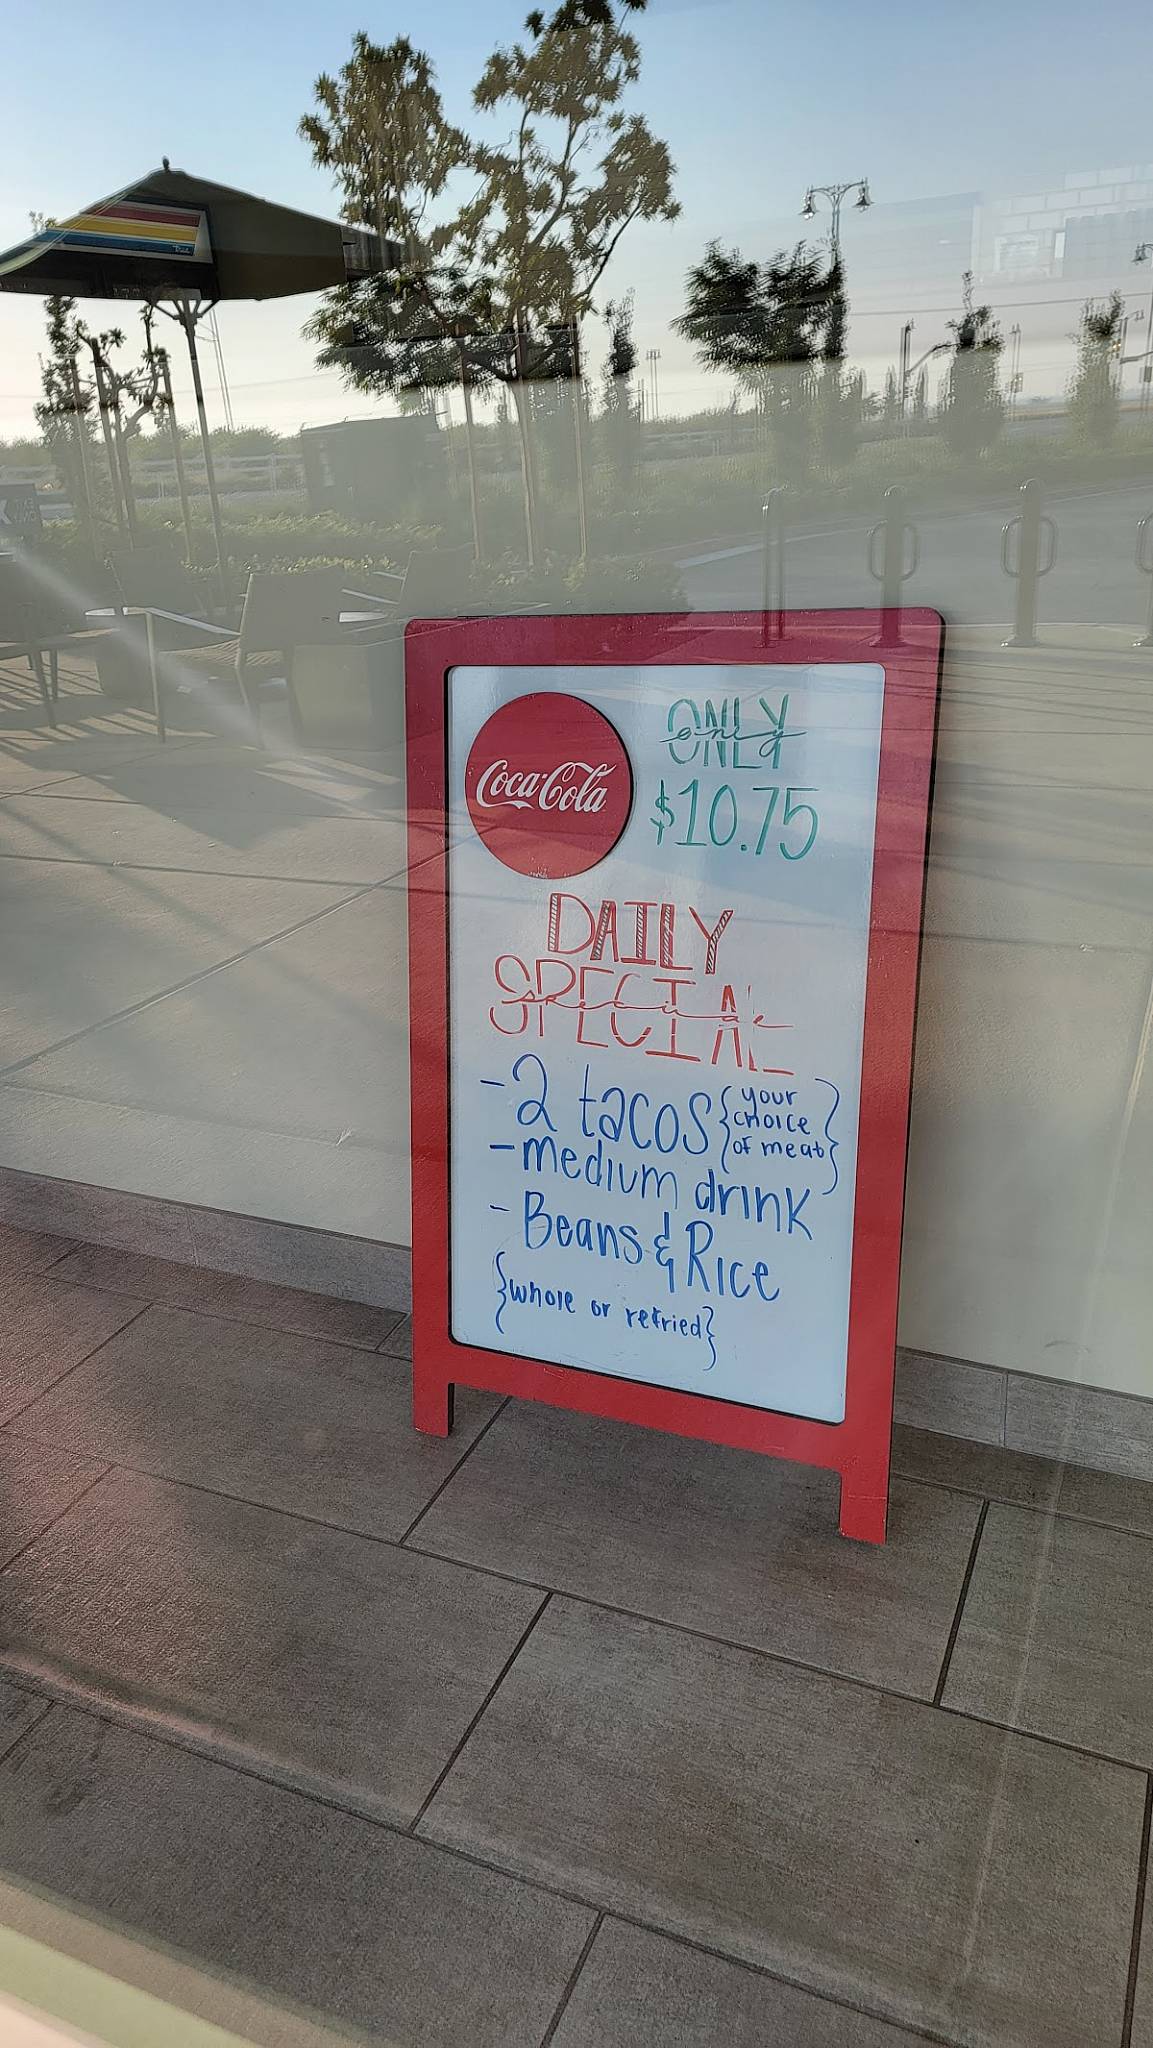 Coca-Cola
ONLY
only
$10.75
DAILY
SPECIAL
special
- 2 tacos {your choice of meat}
- medium drink
- Beans & Rice
{whole or refried}